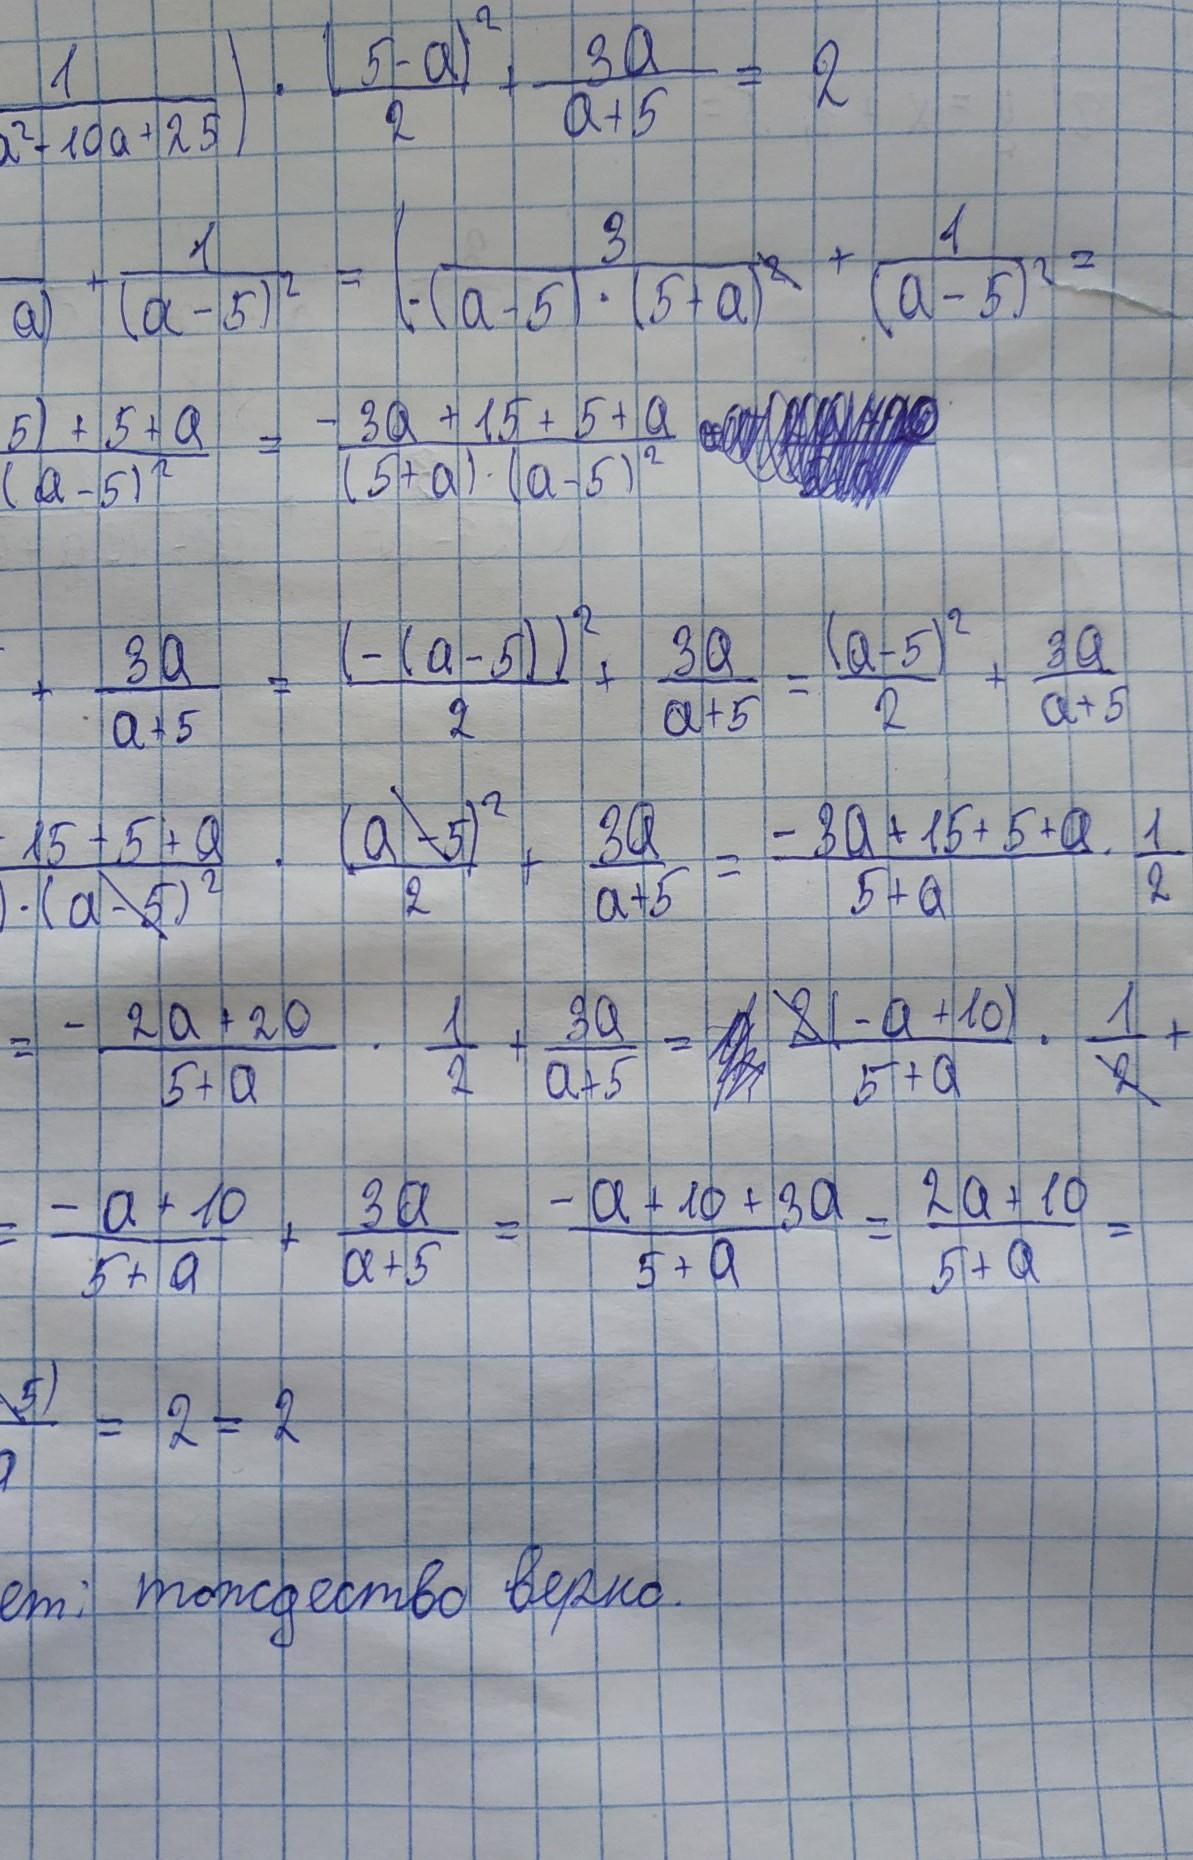 1/(a²-10a+25)) · (5-a)²/2 + 3a/(a+5) = 2
a) + 1/(a-5)² = (3/(-(a-5)·(5+a)) + 1/(a-5)² =
5)+5+a/(a-5)² = (-3a+15+5+a)/((5+a)·(a-5)²)
+ 3a/(a+5) = (-(a-5))²/2 + 3a/(a+5) = (a-5)²/2 + 3a/(a+5)
15+5+a/)·(a-5)² · (a-5)²/2 + 3a/(a+5) = (-3a+15+5+a)/(5+a) · 1/2
= - 2a+20/(5+a) · 1/2 + 3a/(a+5) = 2(-a+10)/(5+a) · 1/2 +
= (-a+10)/(5+a) + 3a/(a+5) = (-a+10+3a)/(5+a) = (2a+10)/(5+a) =
5)/a = 2 = 2
ет: тождество верно.